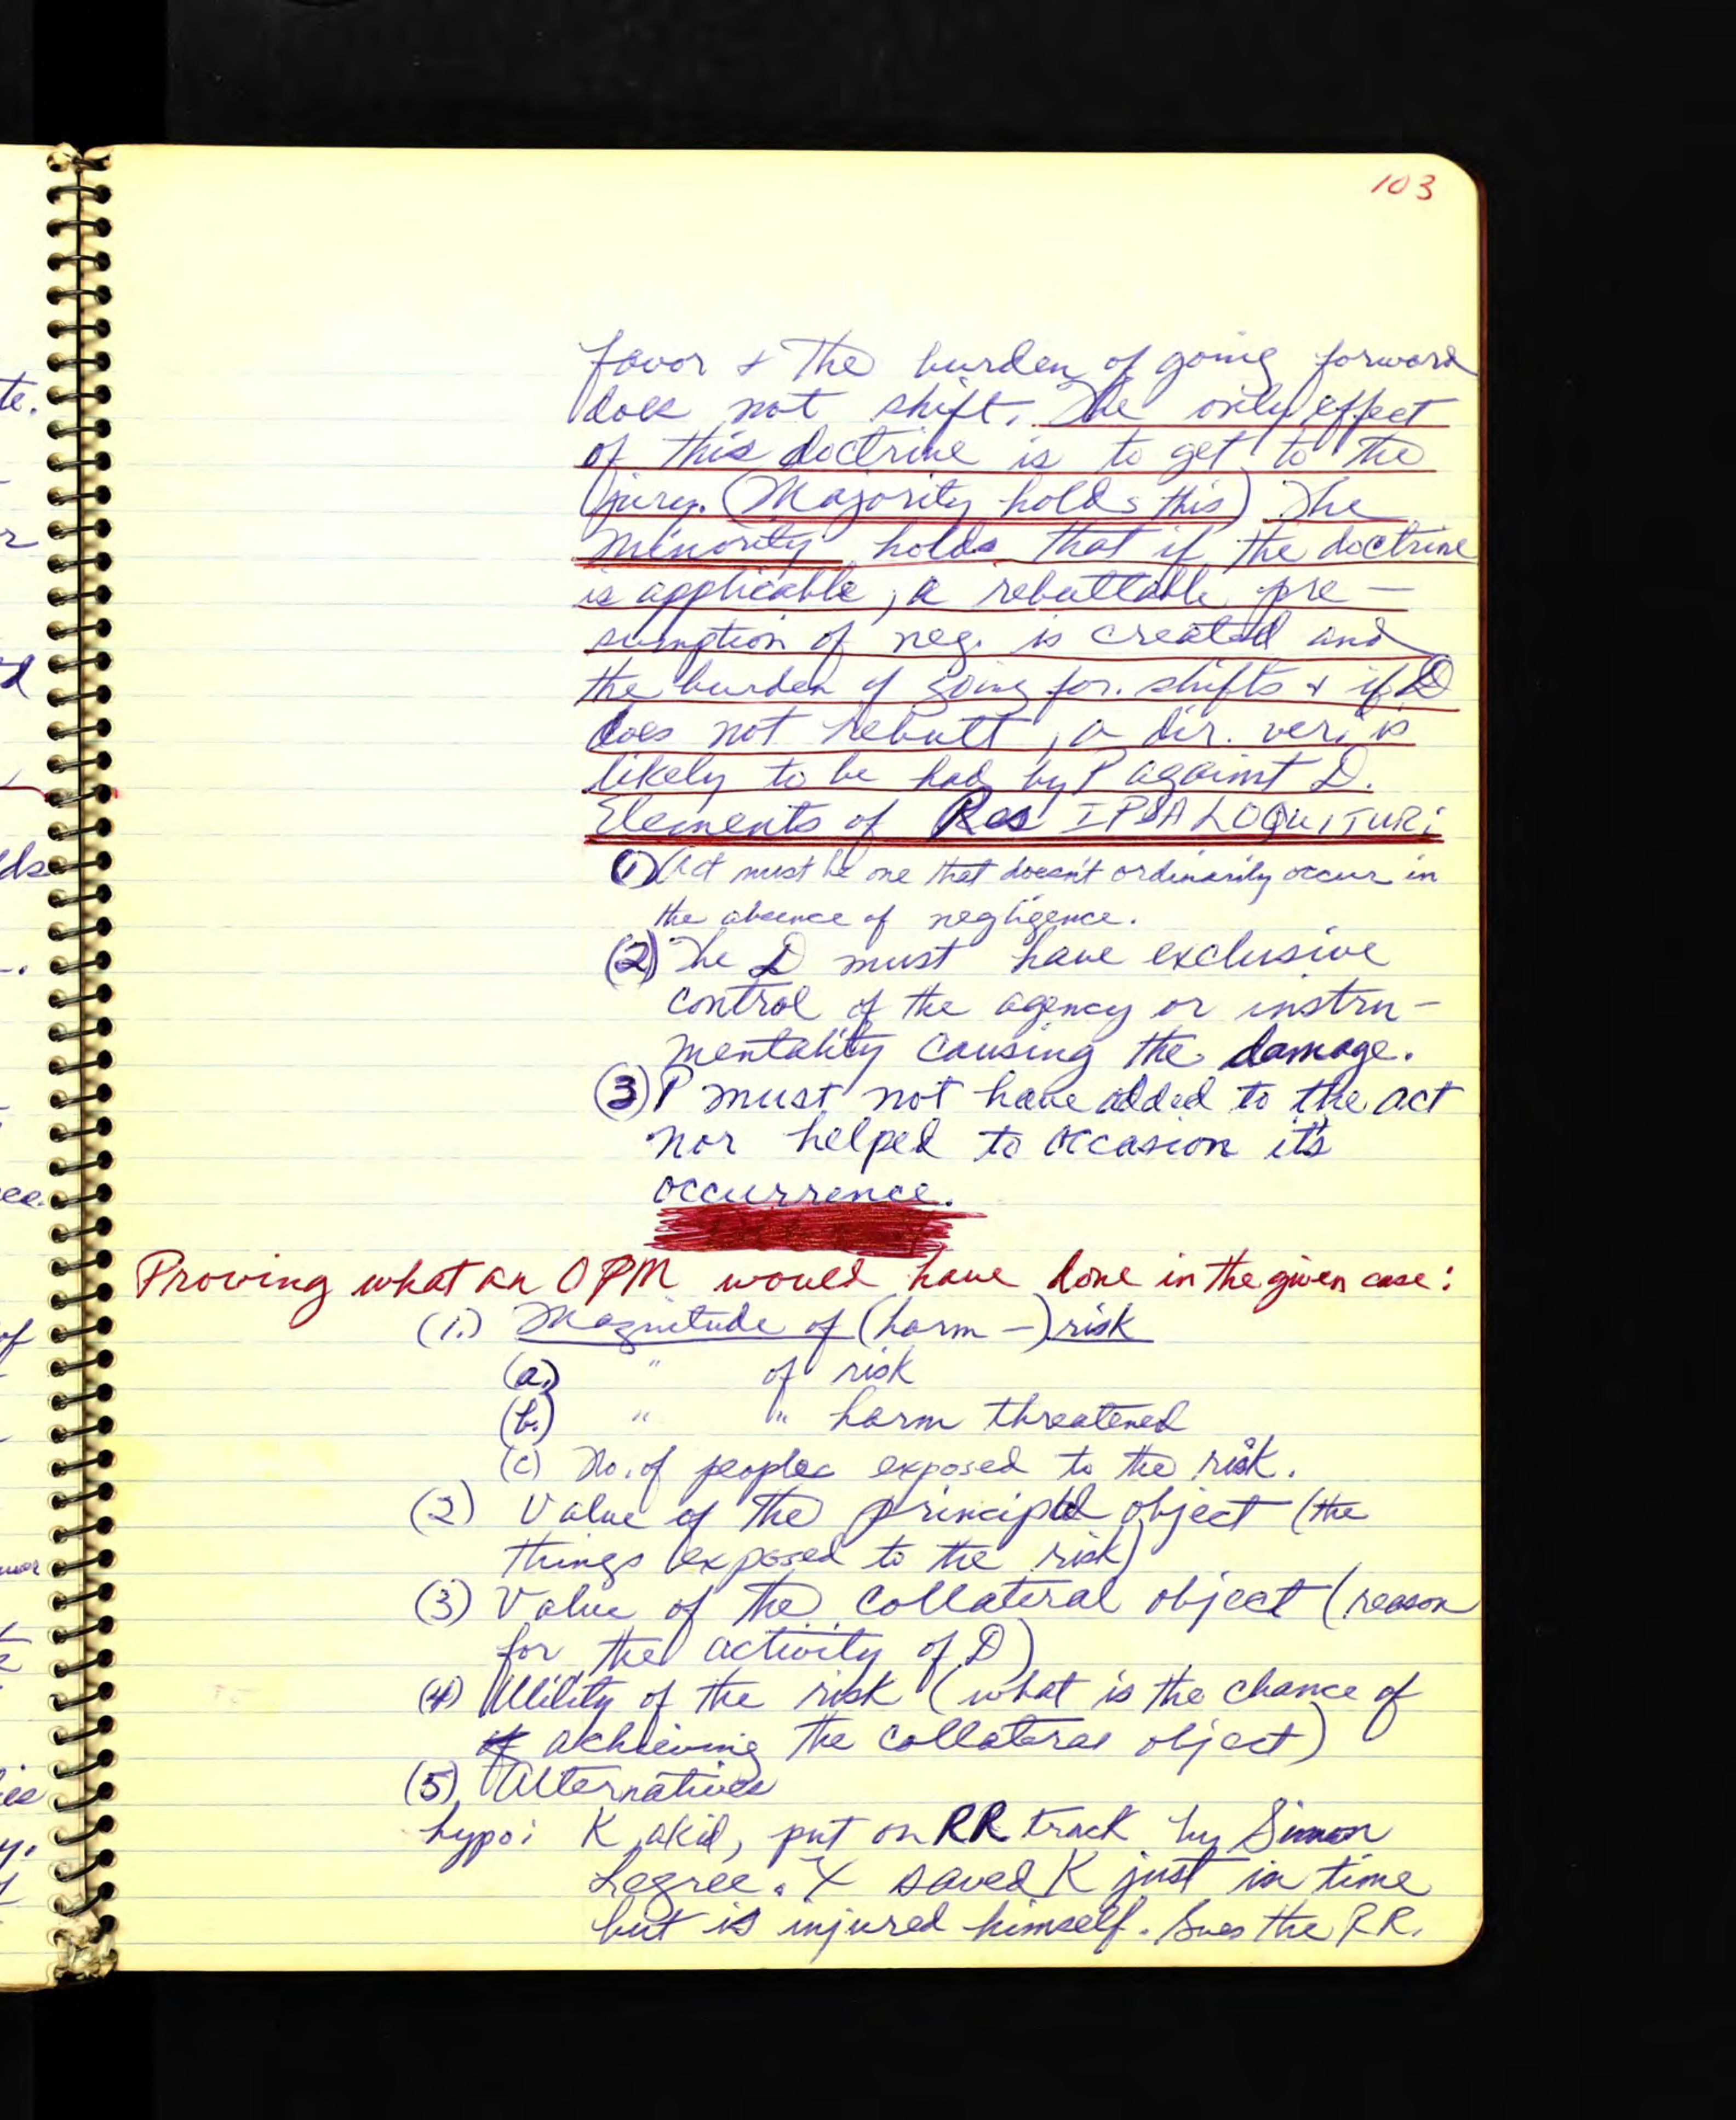 103
favor & the burden of going forward
does not shift. The only effect
of this doctrine is to get to the
jury. (Majority holds this) The
minority holds that if the doctrine
is applicable, a rebuttable pre-
sumption of neg. is created and
the burden of going for. shifts & if D
does not rebutt, a dir. ver. is
likely to be had by P against D.
Elements of Res IPSA LOQUITUR:
(1) Act must be one that doesn't ordinarily occur in
the absence of negligence.
(2) The D must have exclusive
control of the agency or instru-
mentality causing the damage.
(3) P must not have added to the act
nor helped to occasion it's
occurrence.
Proving what an OPM would have done in the given case:
(1.) Magnitude of (harm-) risk
(a.) " of risk
(b.) " " harm threatened
(c) No. of people exposed to the risk.
(2) Value of the principal object (the
things exposed to the risk)
(3) Value of the collateral object (reason
for the activity of D)
(4) Utility of the risk (what is the chance of
of achieving the collateral object)
(5) Alternatives
hypo: K, a kid, put on RR track by Simon
Legree. X saved K just in time
but is injured himself. Sues the RR.